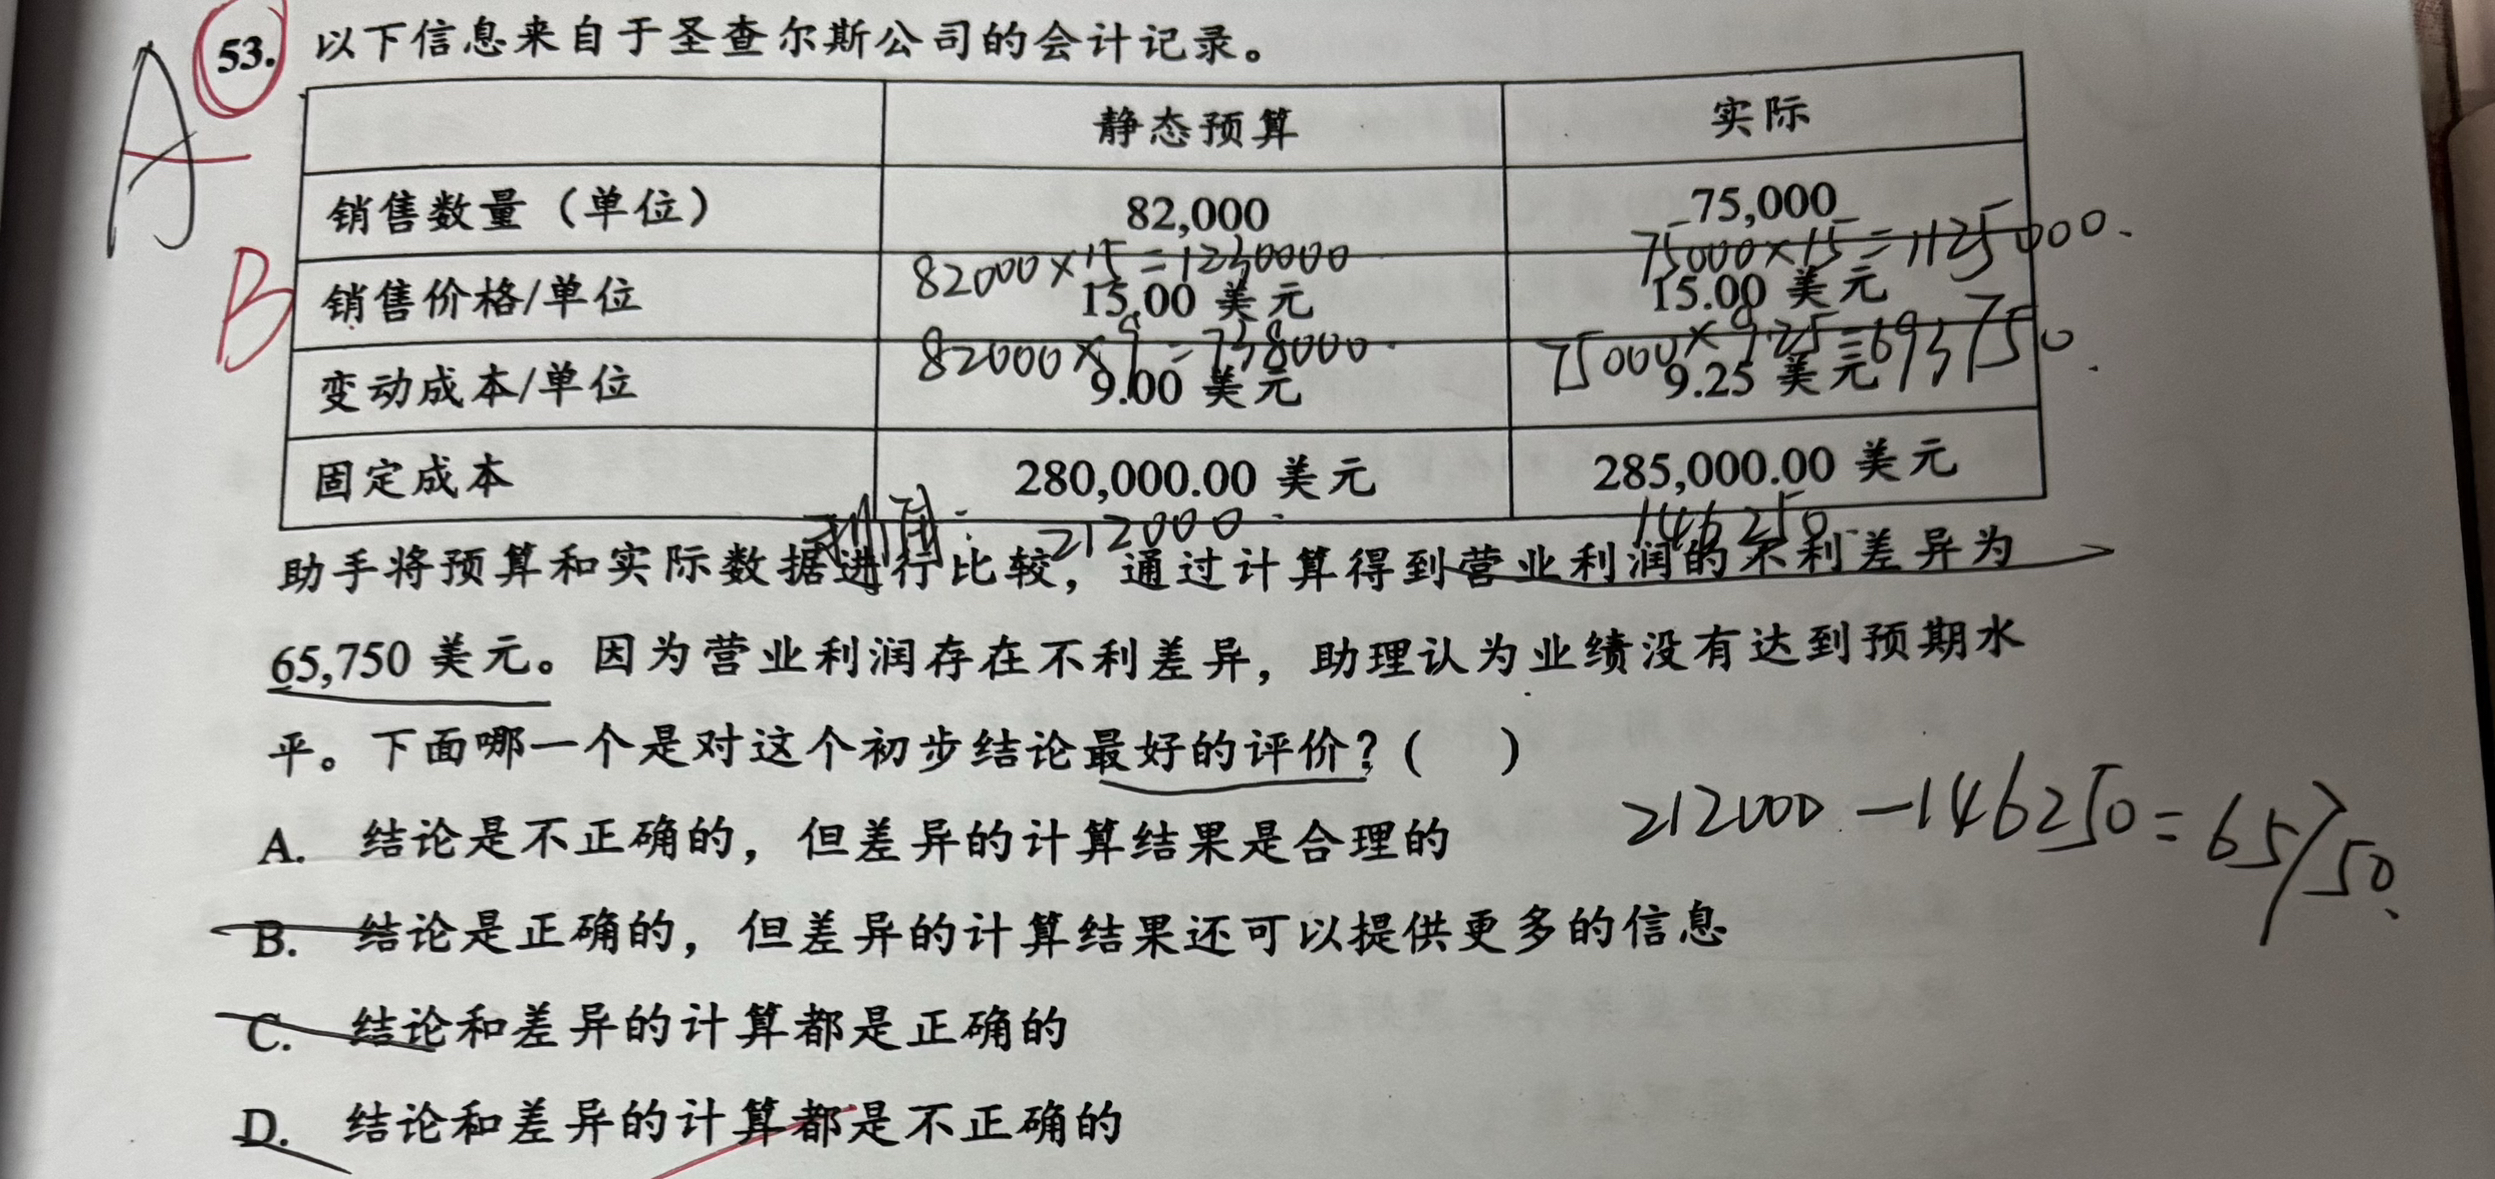 A
53. 以下信息来自于圣查尔斯公司的会计记录。
静态预算 实际
销售数量（单位） 82,000 75,000
82000×15=1230000 75000×15=1125000.
销售价格/单位 15.00 美元 15.00 美元
B
82000×9=738000. 75000×9.25=693750.
变动成本/单位 9.00 美元 9.25 美元
固定成本 280,000.00 美元 285,000.00 美元
212000. 146250
助手将预算和实际数据进行比较，通过计算得到营业利润的不利差异为
65,750 美元。因为营业利润存在不利差异，助理认为业绩没有达到预期水
平。下面哪一个是对这个初步结论最好的评价？( )
212000.-146250=65750.
A. 结论是不正确的，但差异的计算结果是合理的
B. 结论是正确的，但差异的计算结果还可以提供更多的信息
C. 结论和差异的计算都是正确的
D. 结论和差异的计算都是不正确的